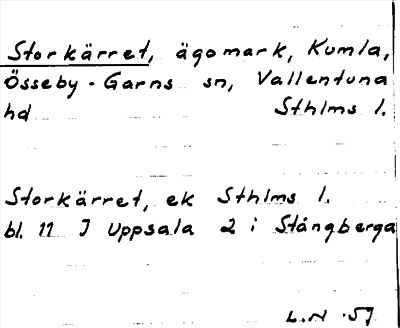 Storkärret, ägomark, Kumla,
Össeby-Garns sn, Vallentuna
hd Sthlms l.
Storkärret, ek Sthlms l.
bl. 11 J Uppsala 2 i Stångberga
L.N. 57